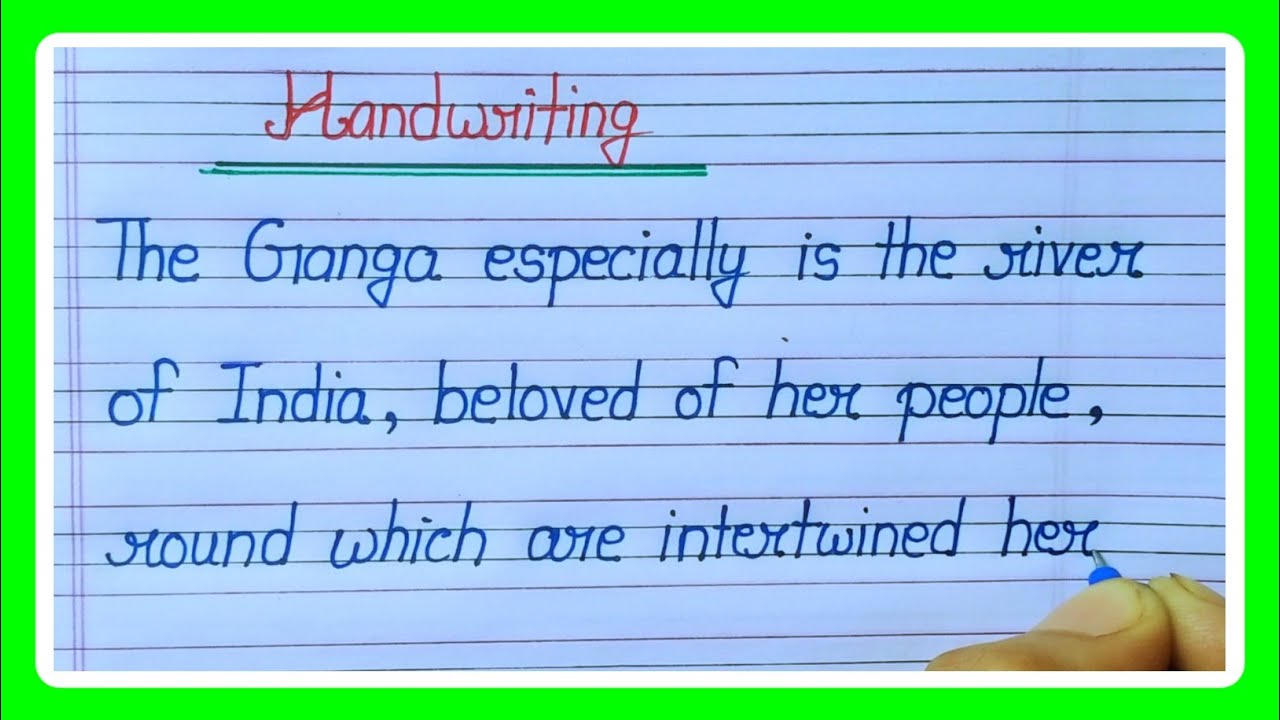 Handwriting
The Ganga especially is the river
of India, beloved of her people,
round which are intertwined her